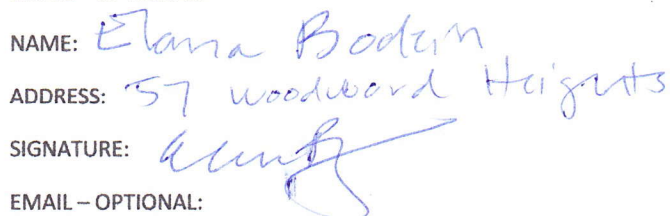 NAME: Elana Bodkin
ADDRESS: 57 Woodward Heights
SIGNATURE:
EMAIL – OPTIONAL: